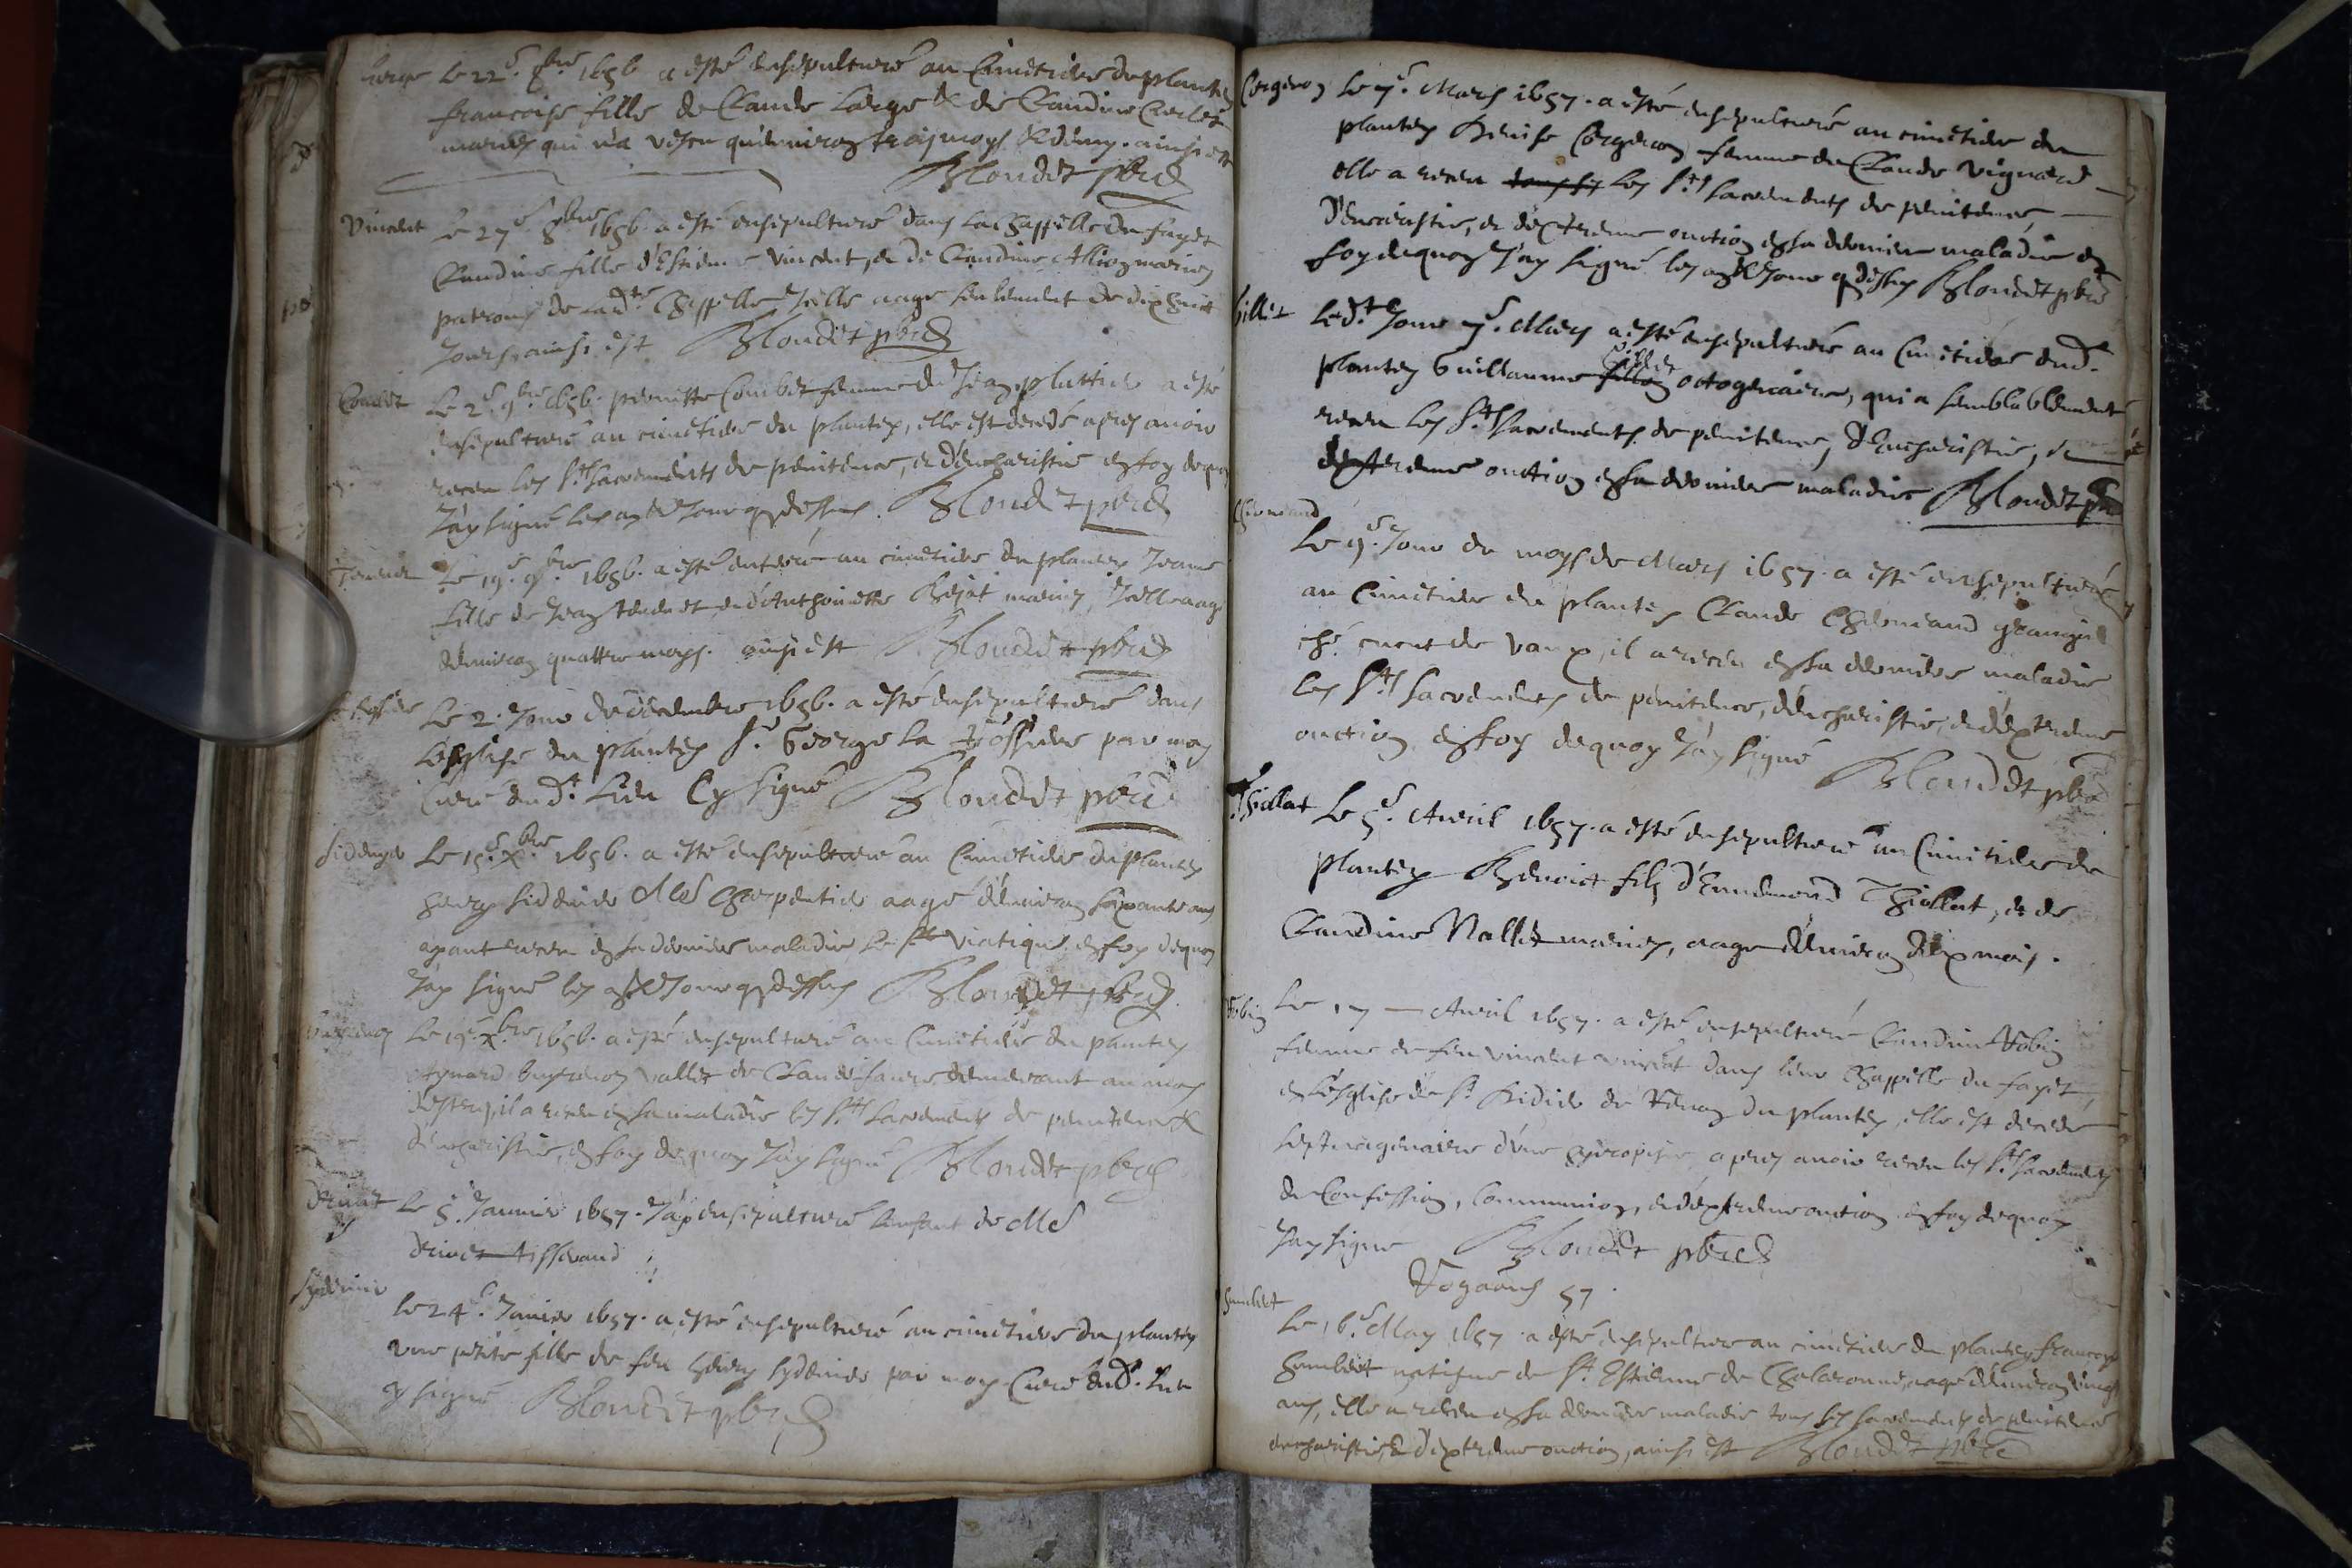 Large Le 22e 8bre 1656 a esté ensepulturé au Cimetiere du plantey
francoise fille de Claude Large & de Claudine
mariez qui n'a vescu qu'environ trois moys & demy. ainsi est
Blondet pbre
Vincent Le 27e 8bre 1656. a esté ensepulturé dans la Chappelle du fayet
Claudine fille d'Estienne Vincent, et de Claudine mariez
patrons de lad.te Chappelle Icelle aage seulement de dix huict
Jours, ainsi est Blondet pbre
Combet Le 2e 9bre 1656. pernette Combet femme de Jean plattier a esté
ensepulturé au cimetiere du plantey, elle est decedé apres avoir
receu les Sts Sacrements de penitence, et d'eucharistie en foy dequoy
J'ay signé les an & Jour que dessus. Blondet pbre
Le 19e 9bre 1656. a esté enterré au cimetiere du plantey Jeane
fille de Jean et d'Anthoinette mariez, Icelle aage
d'environ quattre moys. ainsi est Blondet pbre
Le 2. Jour de decembre 1656. a esté ensepulturé dans
l'esglise du plantey Sr George la par moy
Curé dud.t Lieu Cy signé Blondet pbre
Le 15e Xbre 1656. a esté ensepulturé au Cimetiere du plantey
henry Sidenier Me Charpentier aagé d'environ soixante ans
ayant receu en sa derniere maladie le St Viatique en foy dequoy
J'ay signé les an & Jour que dessus Blondet pbre
Le 19e Xbre 1656. a esté ensepulturé au Cimetiere du plantey
vallet de Claude faure demeurant au mas
il a receu en sa maladie les Sts Sacrements de penitence &
d'eucharistie, en foy dequoy J'ay signé Blondet pbre
Le 5. Janvier 1657. J'ay ensepulturé l'enfant de Me
tisserand
Syderier Le 24e. Janvier 1657. a esté ensepulturé au cimetiere du plantey
une petite fille de feu henry Syderier par moy Curé dud.t Lieu
cy signé Blondet pbre
Corgeron Le 7e. Mars 1657. a esté ensepulturé au cimetiere du
plantey Benise Corgeron femme de Claude Vignard
elle a receu tous ses les Sts Sacrements de penitence,
d'eucaristie, et d'extreme onction en sa derniere maladie en
foy dequoy J'ay signé les an & Jour que dessus Blondet pbre
Gillet Led.t Jour 7e. Mars a esté ensepulturé au Cimetiere dud.t
plantey Guillaume Gillet octogenaire, qui a semblablement
receu les Sts Sacrements de penitence, d'Eucharistie, et
d'extreme onction en sa derniere maladie Blondet pbre
Le 9e. Jour du moys de Mars 1657. a esté ensepulturé
au Cimetiere du plantey Claude granger
de vaux, il a receu en sa derniere maladie
les Sts Sacrements de penitence, d'eucharistie, et d'extreme
onction, en foy dequoy J'ay signé Blondet pbre
Thiollat Le 5e. Avril 1657. a esté ensepulturé au Cimitiere du
plantey Benoict fils d'Ennemond Thiollat, et de
Claudine Vallet mariez, aage d'environ dix mois.
Robin Le 17 Avril 1657. a esté ensepulturé Claudine Robin
femme de feu Vincent Vincent dans leur Chappelle du fayet,
en l'esglise de St Didier de Renon du plantey, elle est decedé
septuagenaire d'une hydropisie apres avoir receu les Sts Sacrements
de Confession, Communion, et d'extreme onction en foy dequoy
J'ay signé Blondet pbre
Rogaõns 57.
humbert Le 16e. May 1657. a esté ensepulturé au cimetiere du plantey francoyse
humbert natifve de St Estienne de Chalaronne, aagé d'environ vingt
ans, elle a receu en sa derniere maladie tous les sacrements de penitence
d'eucharistie, & d'extreme onction, ainsi est Blondet pbre